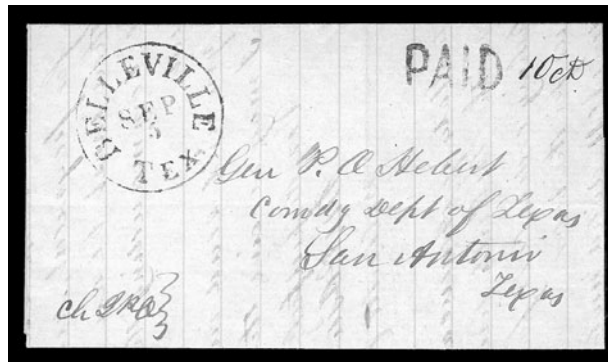 BELLEVILLE
SEP
5
TEX.
PAID 10 cts
Gen P. O. Hebert
Comdg Dept of Texas
San Antonio
Texas